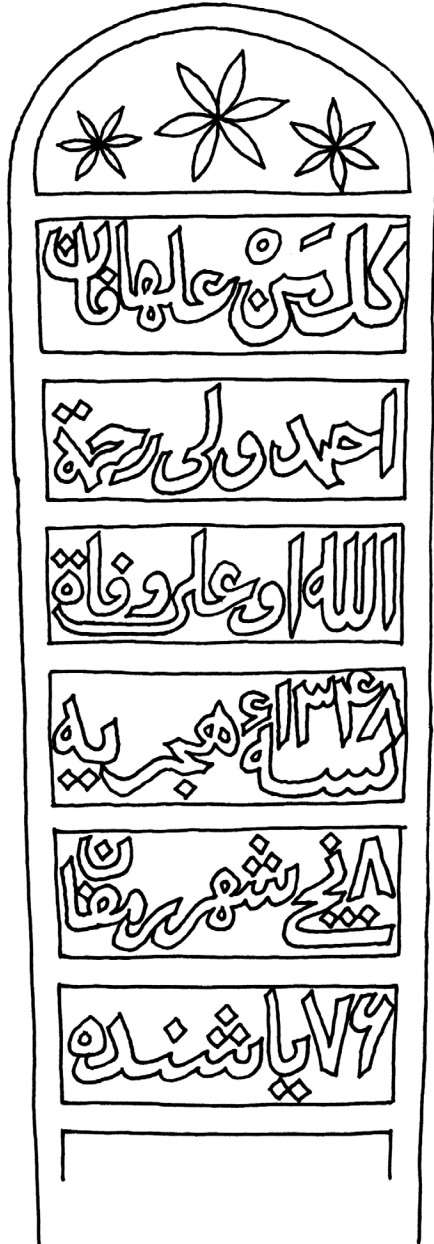 كل مَنْ علها فان
احمد ولى رحمة
الله اوعلر وفاة
سنهٔ ١٣٤٨ هجريه
٨ نجى شهر رمضان
٧۶ ياشنده